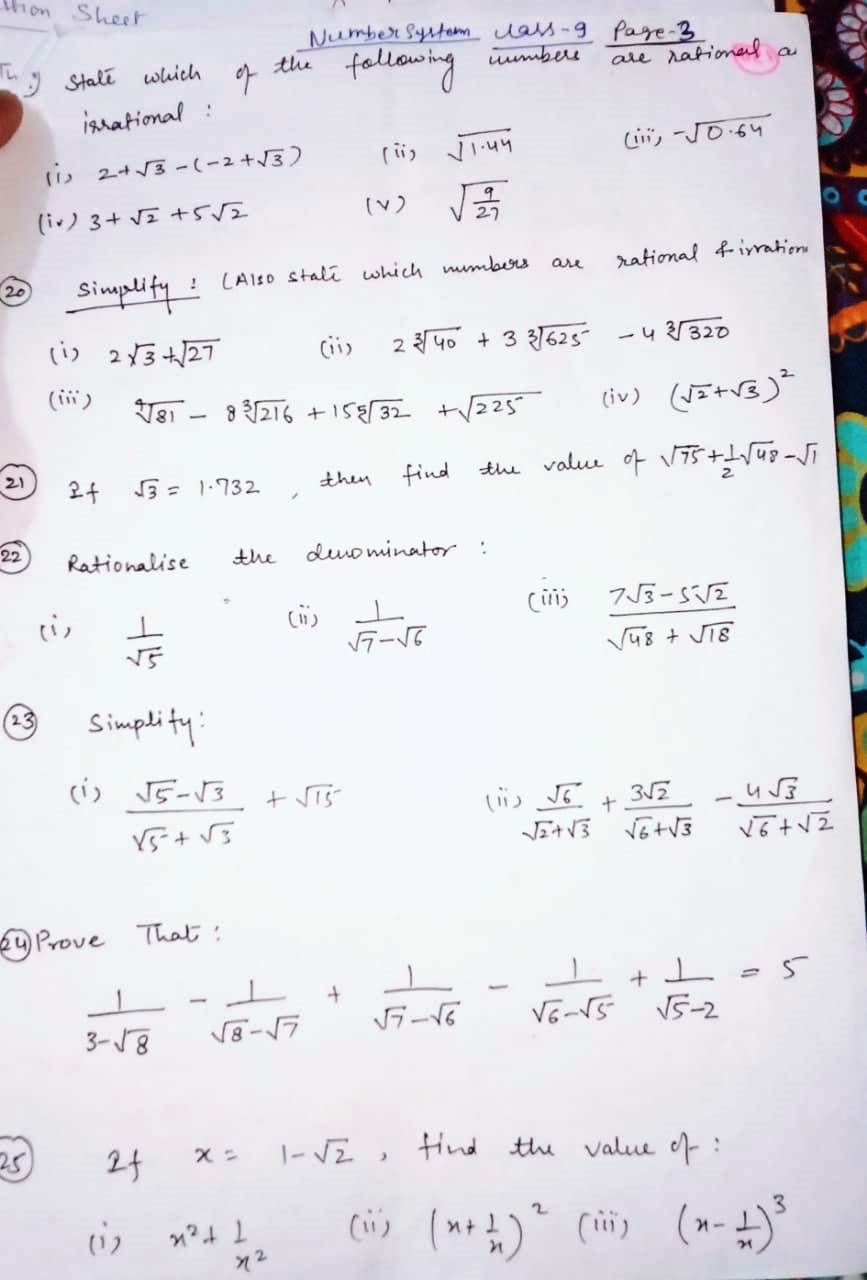 Sheet
Number System Class-9 Page-3
State which of the following numbers are rational a
irrational :
(i) 2+√3 -(-2+√3) (ii) √1.44 (iii) -√0.64
(iv) 3+√2 +5√2 (v) √(9/27)
(20) Simplify : (Also state which numbers are rational & irration
(i) 2√3+√27 (ii) 2 ∛40 + 3 ∛625 - 4 ∛320
(iii) ∜81 - 8∛216 + 15 ⁵√32 + √225 (iv) (√2+√3)²
(21) If √3 = 1.732 , then find the value of √75+1/2√48-√1
(22) Rationalise the denominator :
(i) 1/√5 (ii) 1/(√7-√6) (iii) (7√3-5√2)/(√48 + √18)
(23) Simplify:
(i) (√5-√3)/(√5+√3) + √15 (ii) √6/(√2+√3) + 3√2/(√6+√3) - 4√3/(√6+√2)
(24) Prove That :
1/(3-√8) - 1/(√8-√7) + 1/(√7-√6) - 1/(√6-√5) + 1/(√5-2) = 5
25 If x = 1-√2 , find the value of :
(i) x²+1/x² (ii) (x+1/x)² (iii) (x-1/x)³